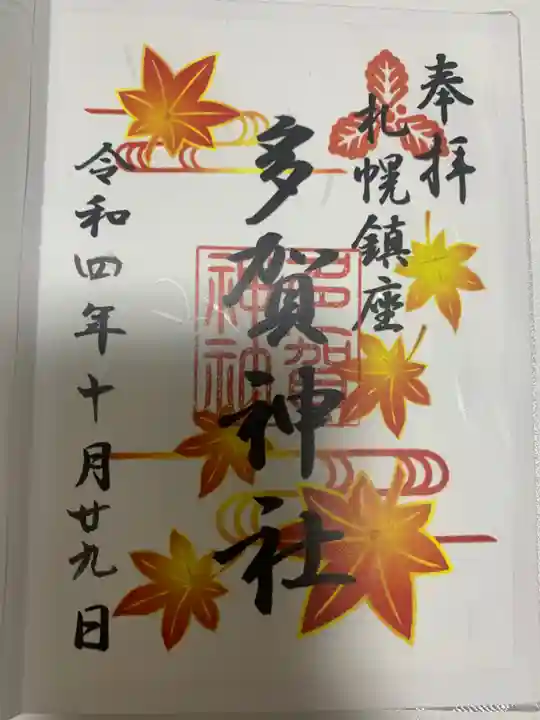 奉拝
札幌鎮座
多賀神社
令和四年十月廿九日